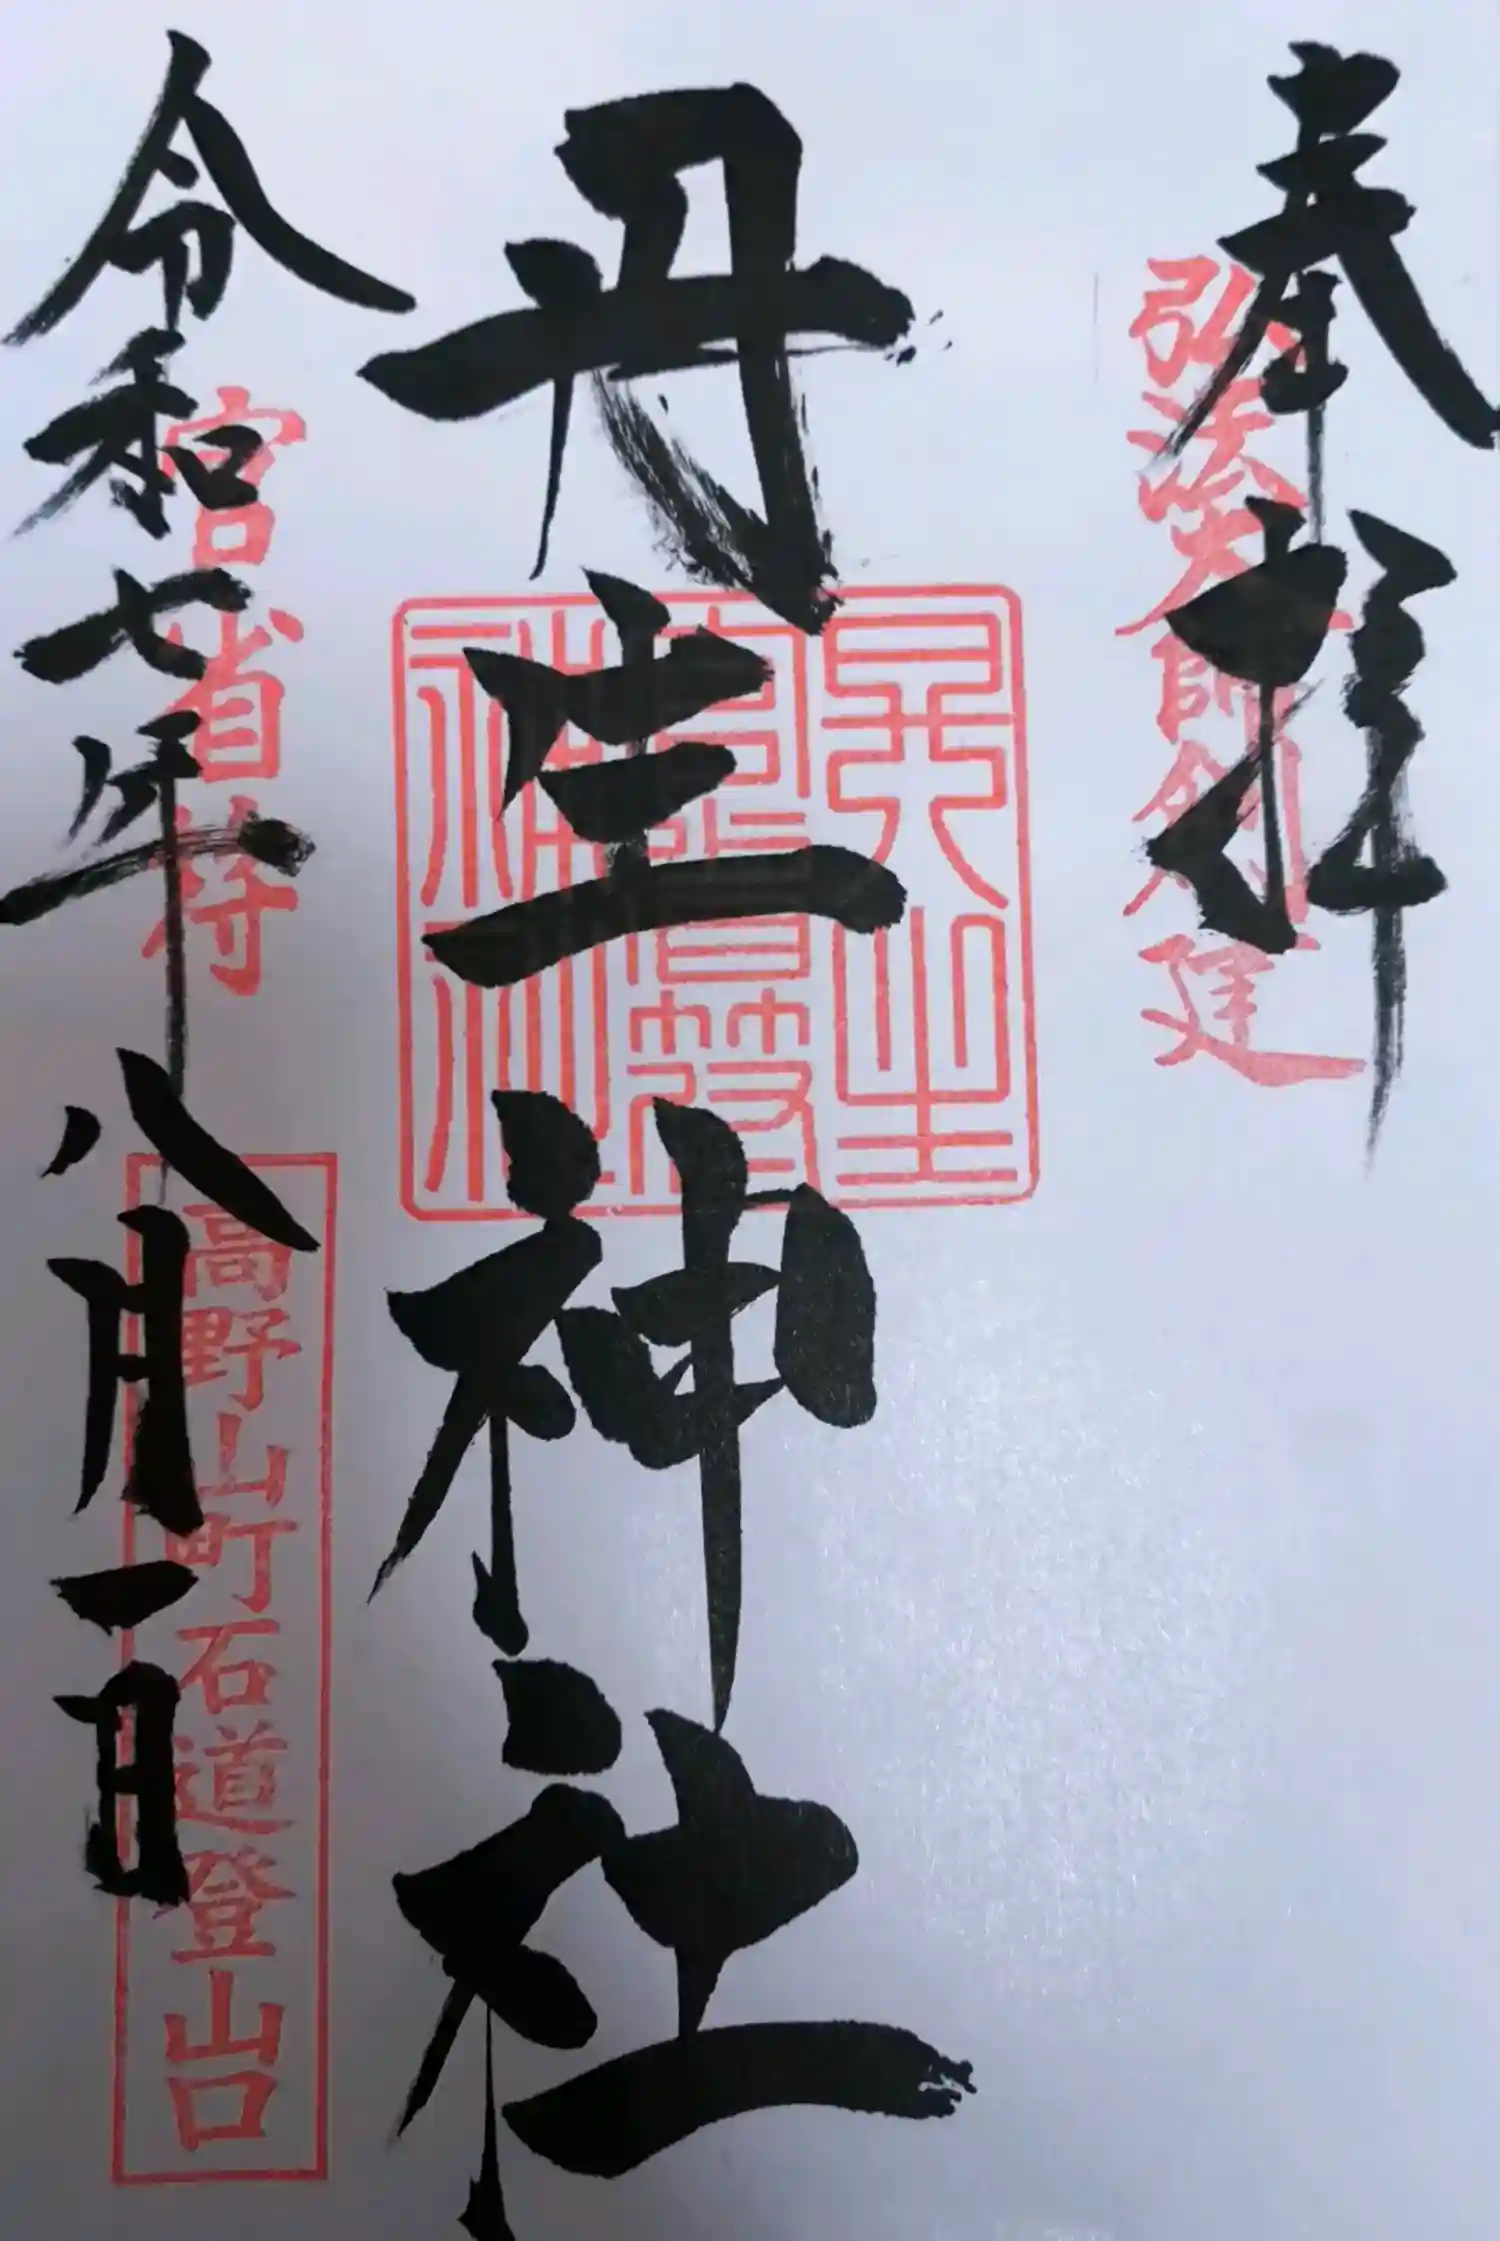 奉拝
弘法大師創建
丹生神社
宮省符
令和七年八月一日
高野山町石道登山口